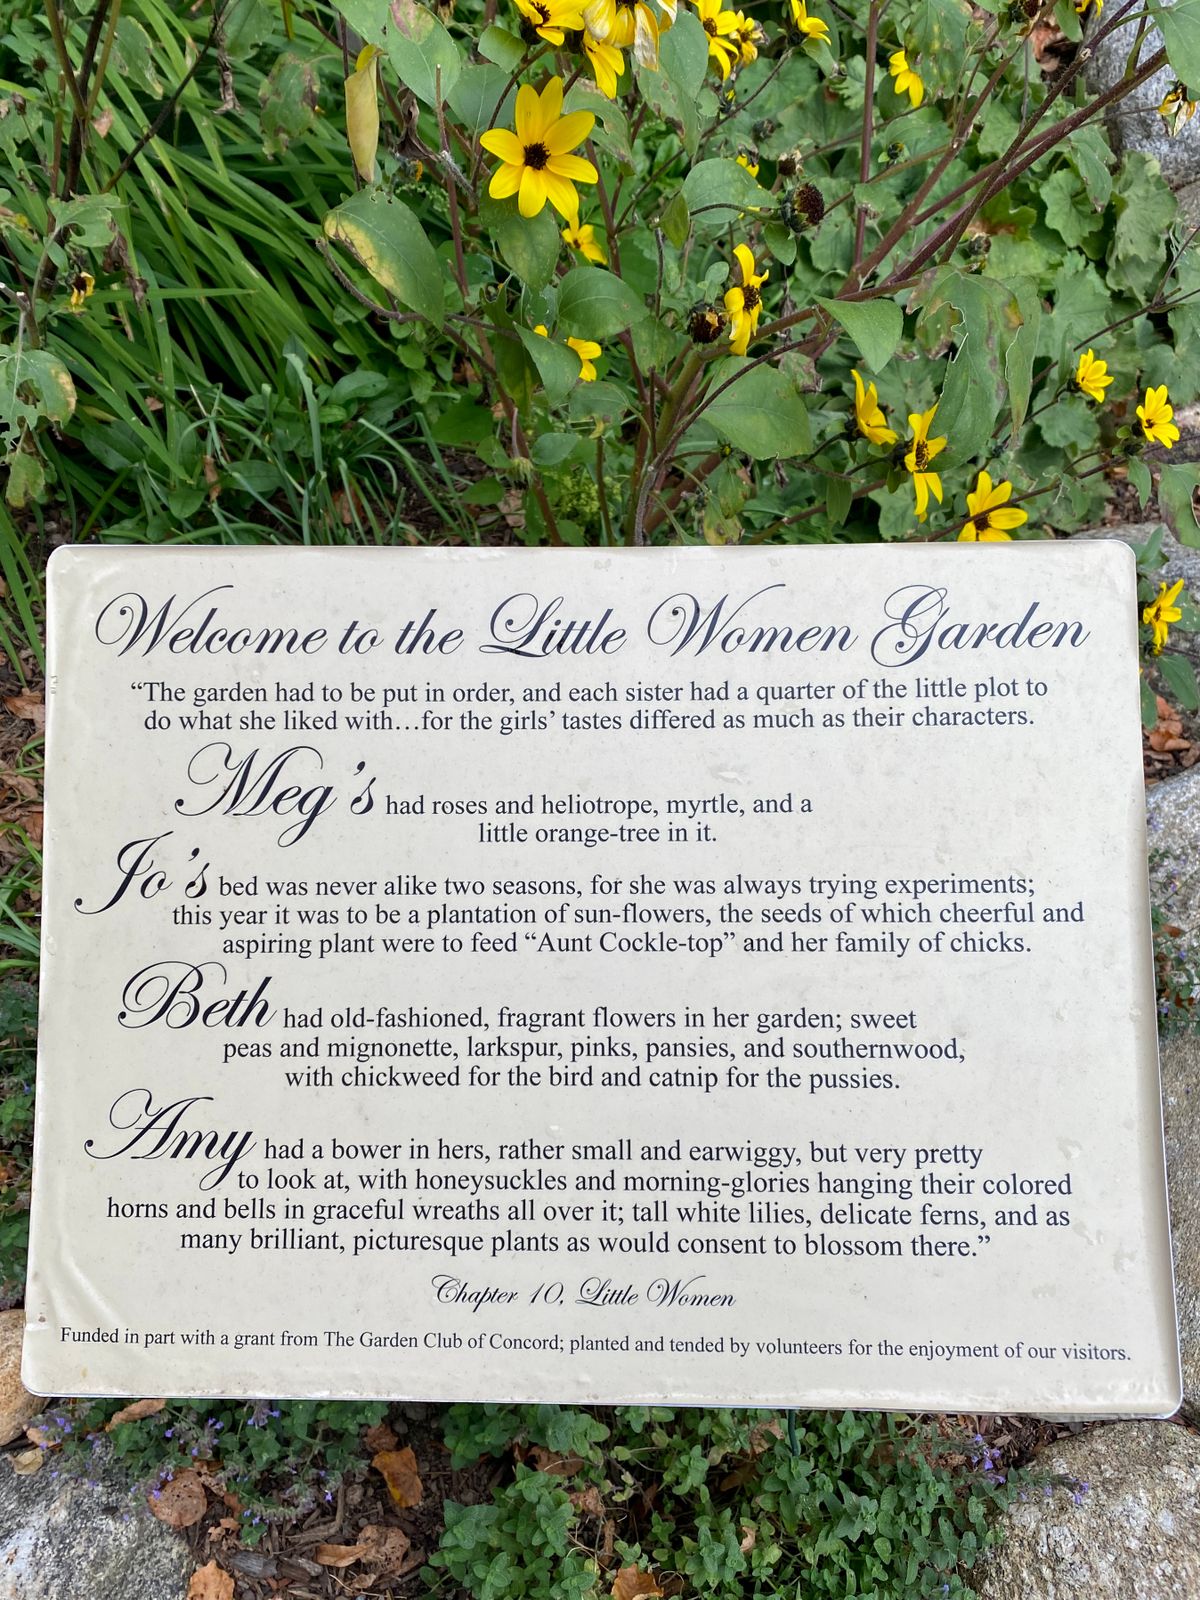 Welcome to the Little Women Garden
“The garden had to be put in order, and each sister had a quarter of the little plot to
do what she liked with…for the girls’ tastes differed as much as their characters.
Meg’s had roses and heliotrope, myrtle, and a
little orange-tree in it.
Jo’s bed was never alike two seasons, for she was always trying experiments;
this year it was to be a plantation of sun-flowers, the seeds of which cheerful and
aspiring plant were to feed “Aunt Cockle-top” and her family of chicks.
Beth had old-fashioned, fragrant flowers in her garden; sweet
peas and mignonette, larkspur, pinks, pansies, and southernwood,
with chickweed for the bird and catnip for the pussies.
Amy had a bower in hers, rather small and earwiggy, but very pretty
to look at, with honeysuckles and morning-glories hanging their colored
horns and bells in graceful wreaths all over it; tall white lilies, delicate ferns, and as
many brilliant, picturesque plants as would consent to blossom there.”
Chapter 10, Little Women
Funded in part with a grant from The Garden Club of Concord; planted and tended by volunteers for the enjoyment of our visitors.